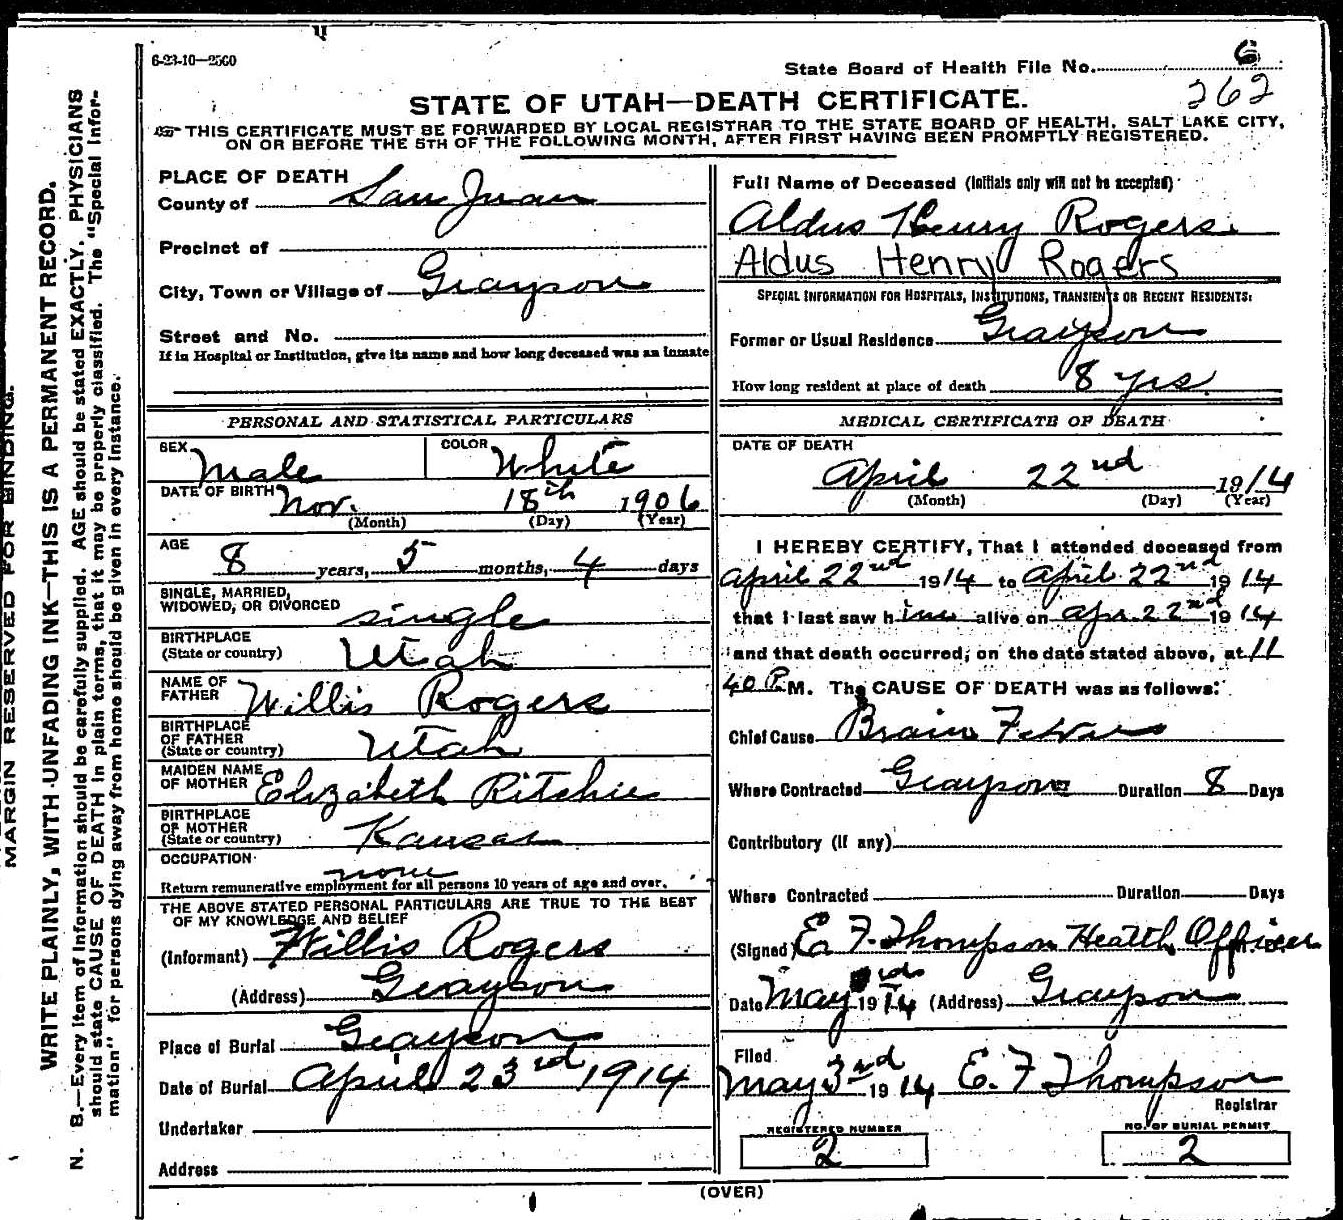 6-23-10—2500
State Board of Health File No. 6
262
STATE OF UTAH—DEATH CERTIFICATE.
THIS CERTIFICATE MUST BE FORWARDED BY LOCAL REGISTRAR TO THE STATE BOARD OF HEALTH, SALT LAKE CITY,
ON OR BEFORE THE 5TH OF THE FOLLOWING MONTH, AFTER FIRST HAVING BEEN PROMPTLY REGISTERED.
MARGIN RESERVED FOR BINDING.
WRITE PLAINLY, WITH UNFADING INK—THIS IS A PERMANENT RECORD.
N. B.—Every item of information should be carefully supplied. AGE should be stated EXACTLY. PHYSICIANS
should state CAUSE OF DEATH in plain terms, that it may be properly classified. The "Special Infor-
mation" for persons dying away from home should be given in every instance.
PLACE OF DEATH
County of San Juan
Precinct of
City, Town or Village of Grayson
Street and No.
If in Hospital or Institution, give its name and how long deceased was an inmate
PERSONAL AND STATISTICAL PARTICULARS
SEX Male COLOR White
DATE OF BIRTH Nov. 18th 1906
(Month) (Day) (Year)
AGE
8 years, 5 months, 4 days
SINGLE, MARRIED,
WIDOWED, OR DIVORCED single
BIRTHPLACE
(State or country) Utah
NAME OF
FATHER Willis Rogers
BIRTHPLACE
OF FATHER
(State or country) Utah
MAIDEN NAME
OF MOTHER Elizabeth Ritchie
BIRTHPLACE
OF MOTHER
(State or country) Kansas
OCCUPATION
none
Return remunerative employment for all persons 10 years of age and over.
THE ABOVE STATED PERSONAL PARTICULARS ARE TRUE TO THE BEST
OF MY KNOWLEDGE AND BELIEF
(Informant) Willis Rogers
(Address) Grayson
Place of Burial Grayson
Date of Burial April 23rd 1914
Undertaker
Address
Full Name of Deceased (Initials only will not be accepted)
Aldus Henry Rogers.
Aldus Henry Rogers
SPECIAL INFORMATION FOR HOSPITALS, INSTITUTIONS, TRANSIENTS OR RECENT RESIDENTS:
Former or Usual Residence Grayson
How long resident at place of death 8 yrs
MEDICAL CERTIFICATE OF DEATH
DATE OF DEATH
April 22nd 1914
(Month) (Day) (Year)
I HEREBY CERTIFY, That I attended deceased from
April 22nd 1914 to April 22nd 1914
that I last saw him alive on Apr. 22nd 1914
and that death occurred, on the date stated above, at 11
40 P. M. The CAUSE OF DEATH was as follows:
Chief Cause Brain Fever
Where Contracted Grayson Duration 8 Days
Contributory (if any)
Where Contracted Duration Days
(Signed) E. F. Thompson Health Officer
Date May 1914 (Address) Grayson
Filed
May 3rd 1914 E. F Thompson
Registrar
REGISTERED NUMBER
2
NO. OF BURIAL PERMIT
2
(OVER)